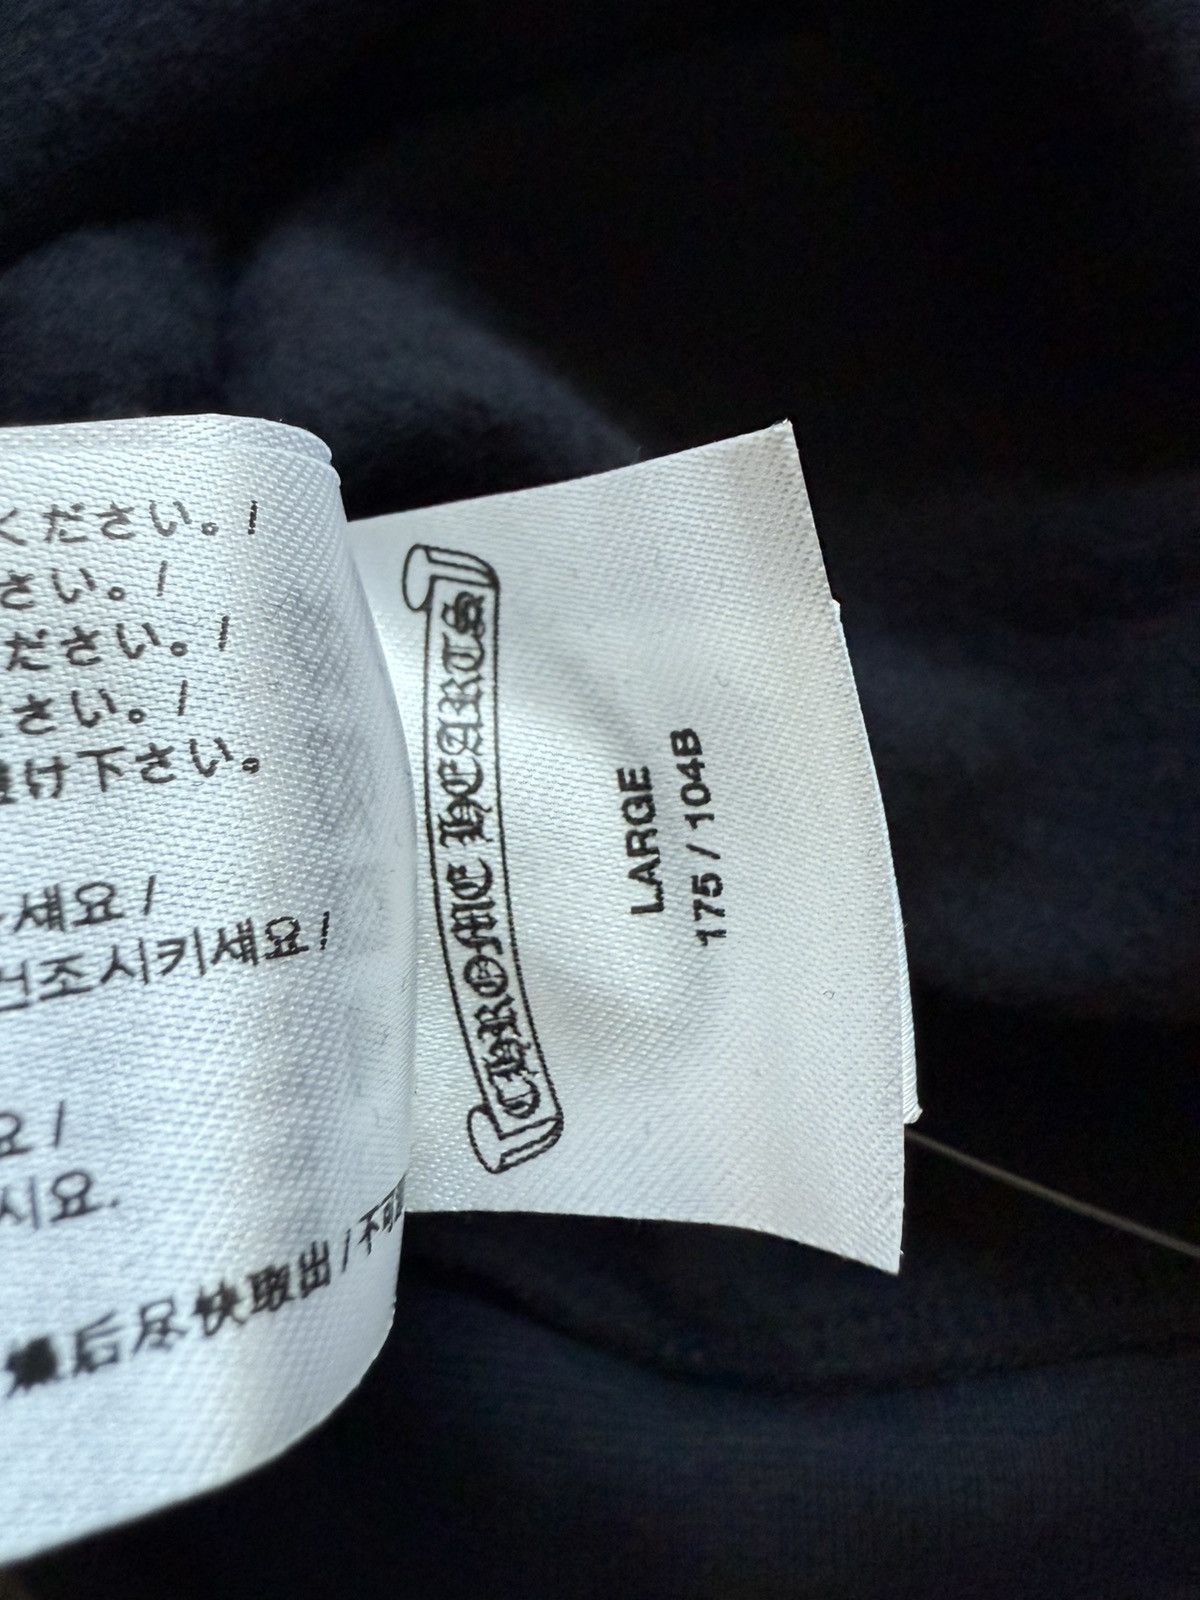 ください。/
さい。/
ださい。/
ださい。/
け下さい。
세요 /
건조시키세요 /
요 /
시요.
后尽快取出 / 不可
CHROME HEARTS
LARGE
175 / 104B